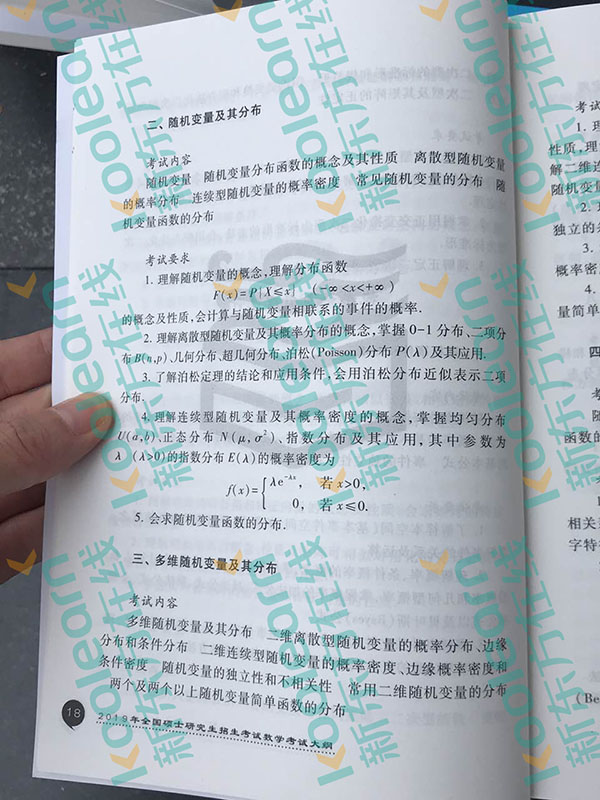 二、随机变量及其分布
考试内容
随机变量 随机变量分布函数的概念及其性质 离散型随机变量
的概率分布 连续型随机变量的概率密度 常见随机变量的分布 随
机变量函数的分布
考试要求
1. 理解随机变量的概念,理解分布函数
F(x)=P{X≤x} (-∞<x<+∞)
的概念及性质,会计算与随机变量相联系的事件的概率.
2. 理解离散型随机变量及其概率分布的概念,掌握 0-1 分布、二项分
布 B(n,p)、几何分布、超几何分布、泊松(Poisson)分布 P(λ)及其应用.
3. 了解泊松定理的结论和应用条件,会用泊松分布近似表示二项
分布.
4. 理解连续型随机变量及其概率密度的概念,掌握均匀分布
U(a,b)、正态分布 N(μ,σ²)、指数分布及其应用,其中参数为
λ (λ>0)的指数分布 E(λ)的概率密度为
f(x)={λe^{-λx}, 若 x>0,
0, 若 x≤0.
5. 会求随机变量函数的分布.
三、多维随机变量及其分布
考试内容
多维随机变量及其分布 二维离散型随机变量的概率分布、边缘
分布和条件分布 二维连续型随机变量的概率密度、边缘概率密度和
条件密度 随机变量的独立性和不相关性 常用二维随机变量的分布
两个及两个以上随机变量简单函数的分布
18
2019年全国硕士研究生招生考试数学考试大纲
考试
1. 理
性质,理
解二维连
随机变量
2.
独立的条
3.
概率密度
4.
量简单
四
考
函数的
相关
字特
(Be
koolearn
新东方在线